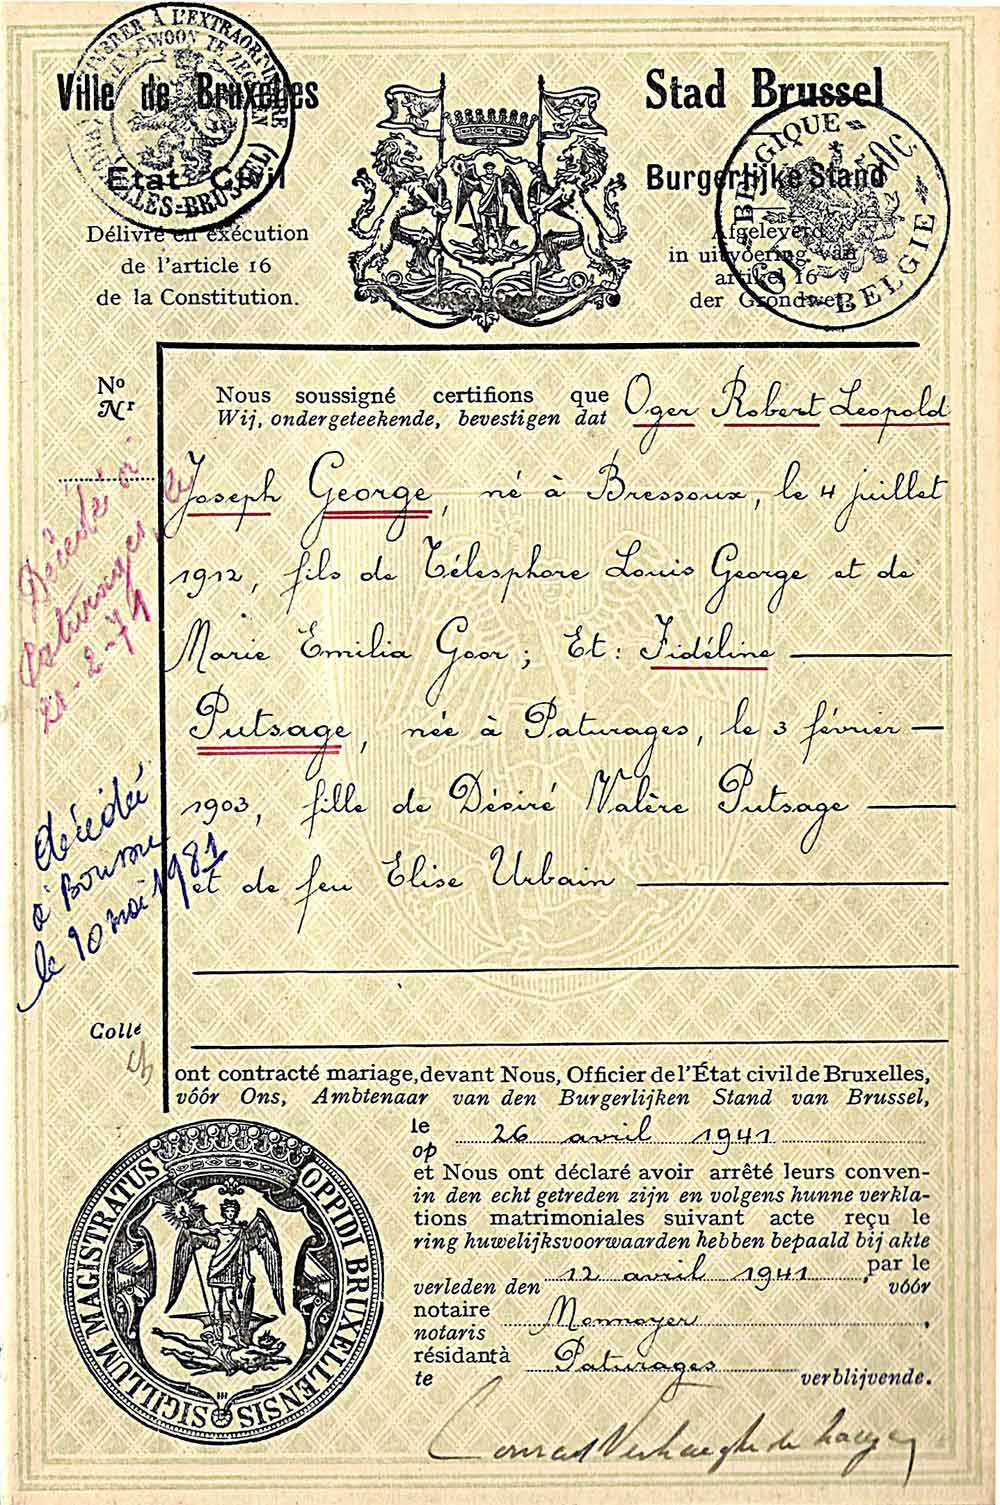 Ville de Bruxelles
État Civil
Délivré en exécution
de l'article 16
de la Constitution.
Stad Brussel
Burgerlijke Stand
Afgeleverd
in uitvoering van
artikel 16
der Grondwet.
BELGIQUE
BELGIE
No
Nr
Nous soussigné certifions que
Wij, ondergeteekende, bevestigen dat
Oger Robert Leopold
Joseph George, né à Bressoux, le 4 juillet
1912, fils de Télesphore Louis George et de
Marie Emilia Goor; Et: Fidéline
Putsage, née à Paturages, le 3 février
1903, fille de Désiré Valère Putsage
et de feu Elise Urbain
Décédé à
Paturages, le
21-2-71
décédée
à Boussu
le 10 mai 1981
Collé
ont contracté mariage, devant Nous, Officier de l'État civil de Bruxelles,
vóór Ons, Ambtenaar van den Burgerlijken Stand van Brussel,
le
op
26 avril 1941
et Nous ont déclaré avoir arrêté leurs conven-
in den echt getreden zijn en volgens hunne verkla-
tions matrimoniales suivant acte reçu le
ring huwelijksvoorwaarden hebben bepaald bij akte
verleden den 12 avril 1941, par le
vóór
notaire
notaris
Monnoyer,
résidant à
te
Paturages
verblijvende.
SIGILLUM MAGISTRATUS OPPIDI BRUXELLENSIS
Conrad Verhaeghe de